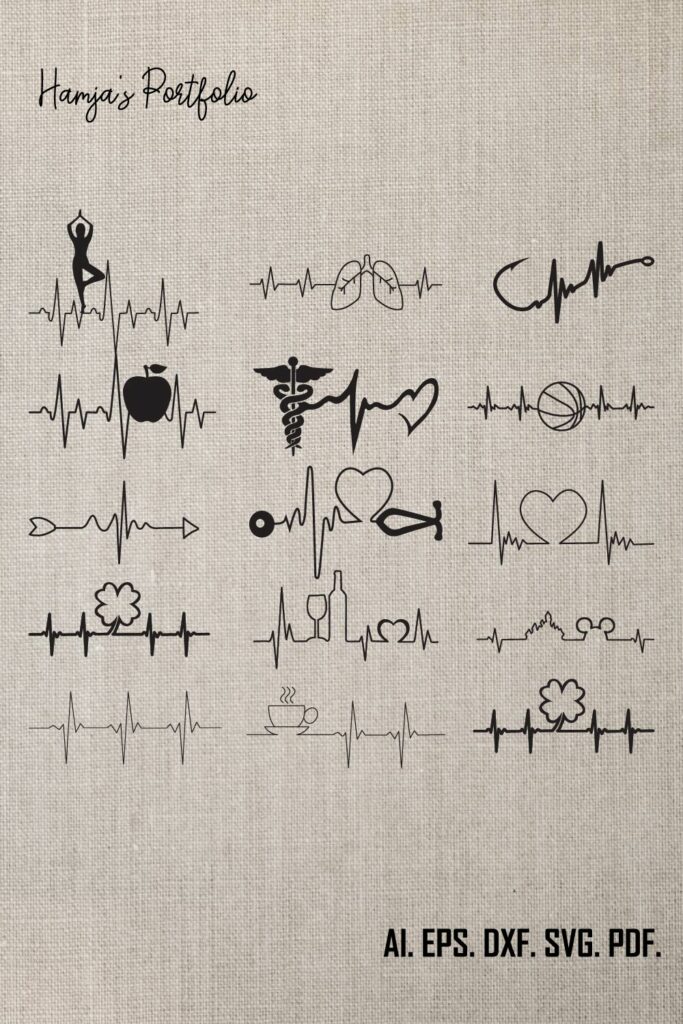 Hamja's Portfolio
AI. EPS. DXF. SVG. PDF.